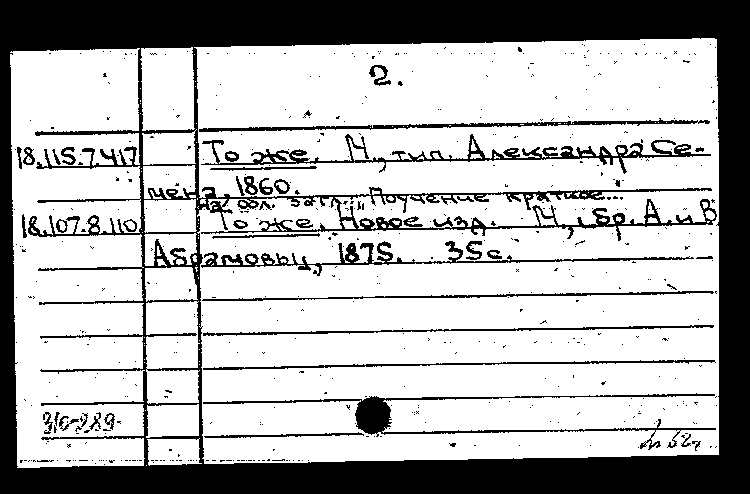 2.
18.115.7.417 То же. М., тип. Александра Се-
мена, 1860.
На обл. загл.: „Поучение краткое...
18.107.8.110 То же. Новое изд. М., бр. А. и В.
Абрамовы, 1875. 35 с.
310-289